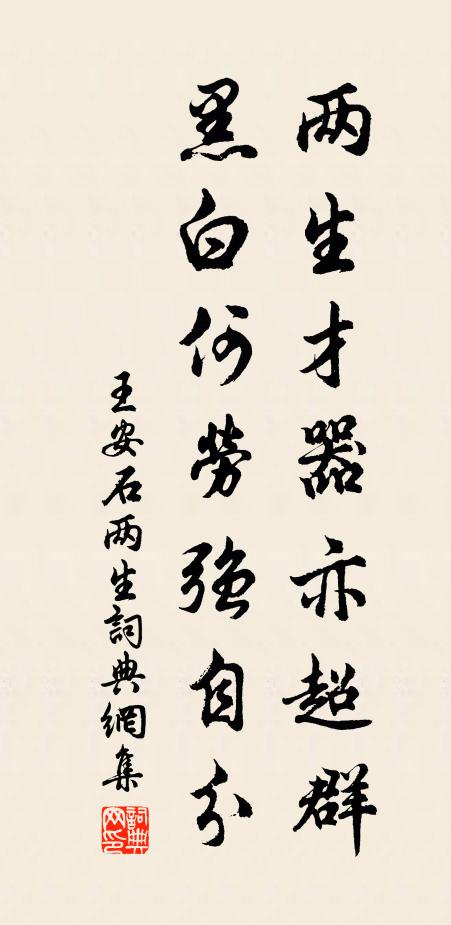 两生才器亦超群
黑白何劳強自分
王安石两生詞典網集
詞典网印